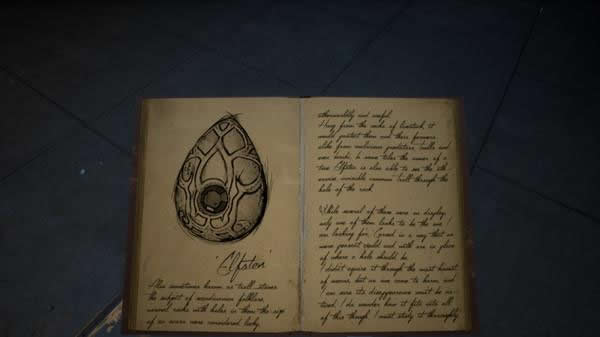 'Elfsten'
Also sometimes known as troll-stones
the subject of scandinavian folklore,
several rocks with holes in them the size
of an acorn were considered lucky,
otherworldly and useful.
Hung from the necks of livestock, it
would protect them and their farmers
alike from malicious predators, trolls and
even. In some tales the owner of a
true Elfsten is also able to see the oth-
erwise invisible common troll through the
hole of the rock.
While several of them were on display
only one of them looks to be the one I
am looking for. Carved in a way that no
mere peasant could and with one in place
of where a hole should be.
I didn't acquire it through the most honest
of means, but no one came to harm, and
I am sure its disappearance must be no-
ticed. I do wonder how it fits into all
of this though. I must study it thoroughly